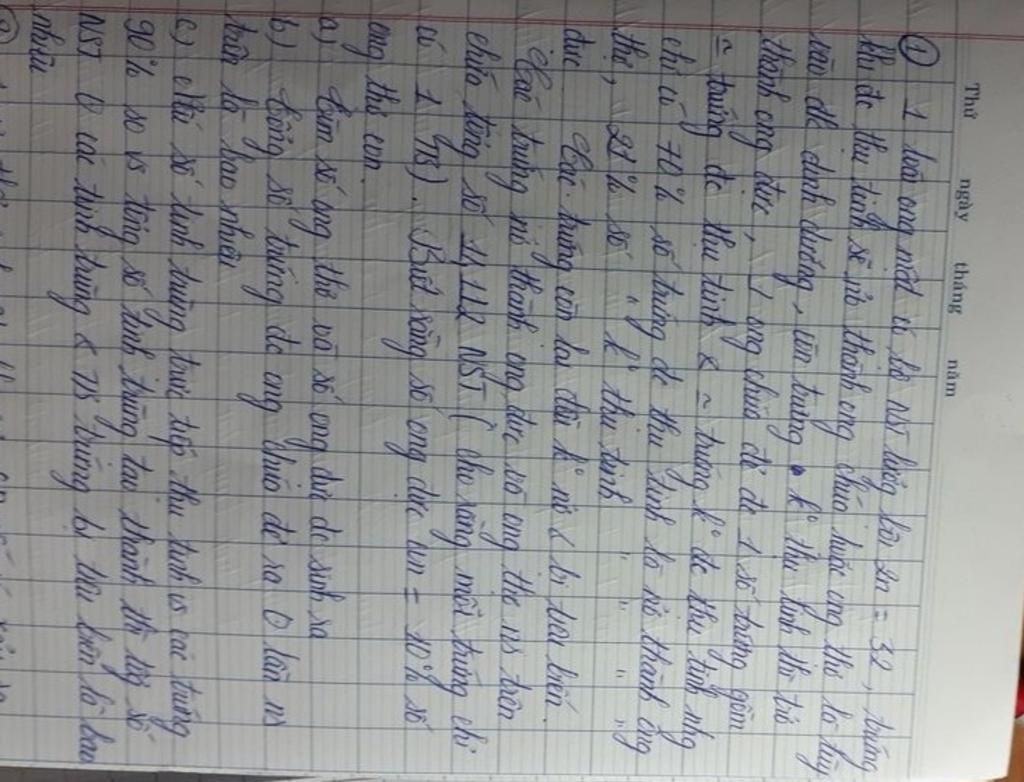 Thứ ngày tháng năm
① 1 loài ong mật có bộ NST lưỡng bội 2n = 32, trứng
khi đc thụ tinh sẽ nở thành ong chúa hoặc ong thợ là tùy
vào đk dinh dưỡng, còn trứng k° thụ tinh thì nở
thành ong đực, 1 ong chúa đẻ đc 1 số trứng gồm
= trứng đc thụ tinh & = trứng k° đc thụ tinh nhg
chỉ có 70% số trứng đc thụ tinh là nở thành ong
thợ, 21% số " k° thụ tinh " " " "
đực. Các trứng còn lại đều k° nở & bị tiêu biến.
Các trứng nở thành ong đực và ong thợ ns trên
chứa tổng số NST (cho rằng mỗi trứng chỉ
có 1 TB). Biết rằng số ong đực con = 10% số
ong thợ con.
a) Tìm số ong thợ và số ong đực đc sinh ra
b) Tổng số trứng do ong chúa đẻ ra lần ns
trên là bao nhiêu
c) Nếu số tinh trùng trực tiếp thụ tinh vs các trứng
90% so vs tổng số tinh trùng tạo thành thì tổng số
NST ở các tinh trùng & TB trứng bị tiêu biến là bao
nhiêu
②